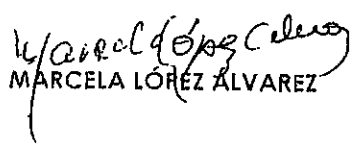 Marcela López Alvarez
MARCELA LÓPEZ ÁLVAREZ